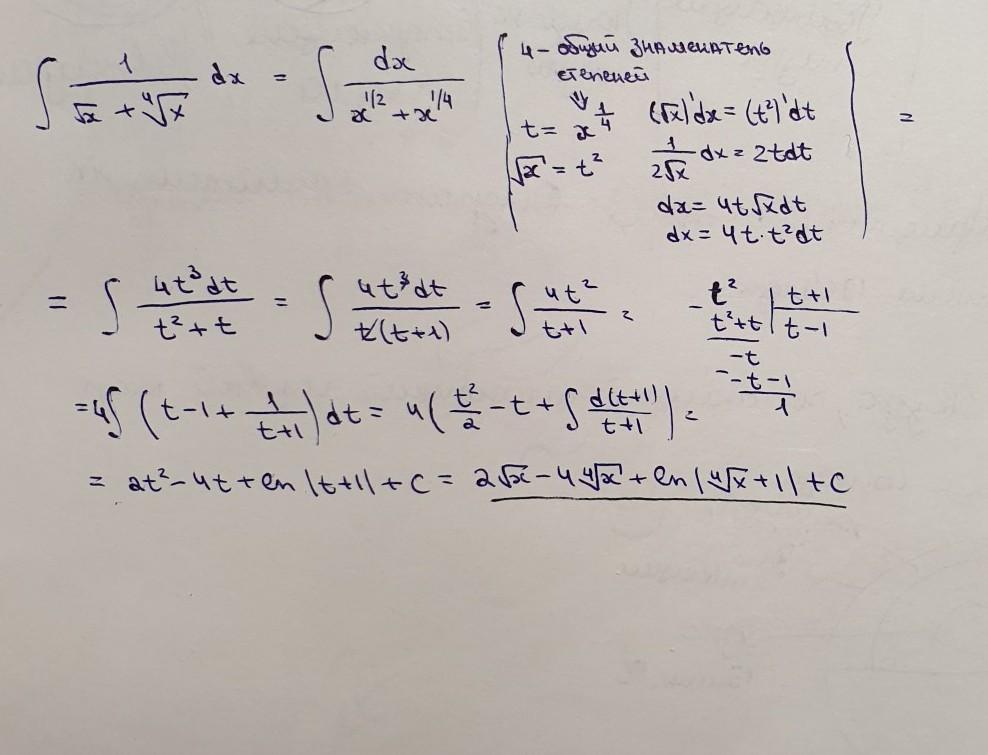 ∫ 1/(√x + ⁴√x) dx = ∫ dx/(x^(1/2) + x^(1/4)) | 4 - общий знаменатель
степеней
⇓
t = x^(1/4) (√x)'dx = (t²)'dt | =
√x = t² 1/(2√x) dx = 2tdt
dx = 4t√xdt
dx = 4t·t²dt
= ∫ 4t³dt/(t² + t) = ∫ 4t³dt/(t(t+1)) = ∫ 4t²/(t+1) = - t² | t+1
t²+t | t-1
-t
- -t-1
1
=4∫ (t-1 + 1/(t+1)) dt = 4(t²/2 - t + ∫ d(t+1)/(t+1)) =
= 2t² - 4t + ln|t+1| + C = 2√x - 4⁴√x + ln|⁴√x + 1| + C